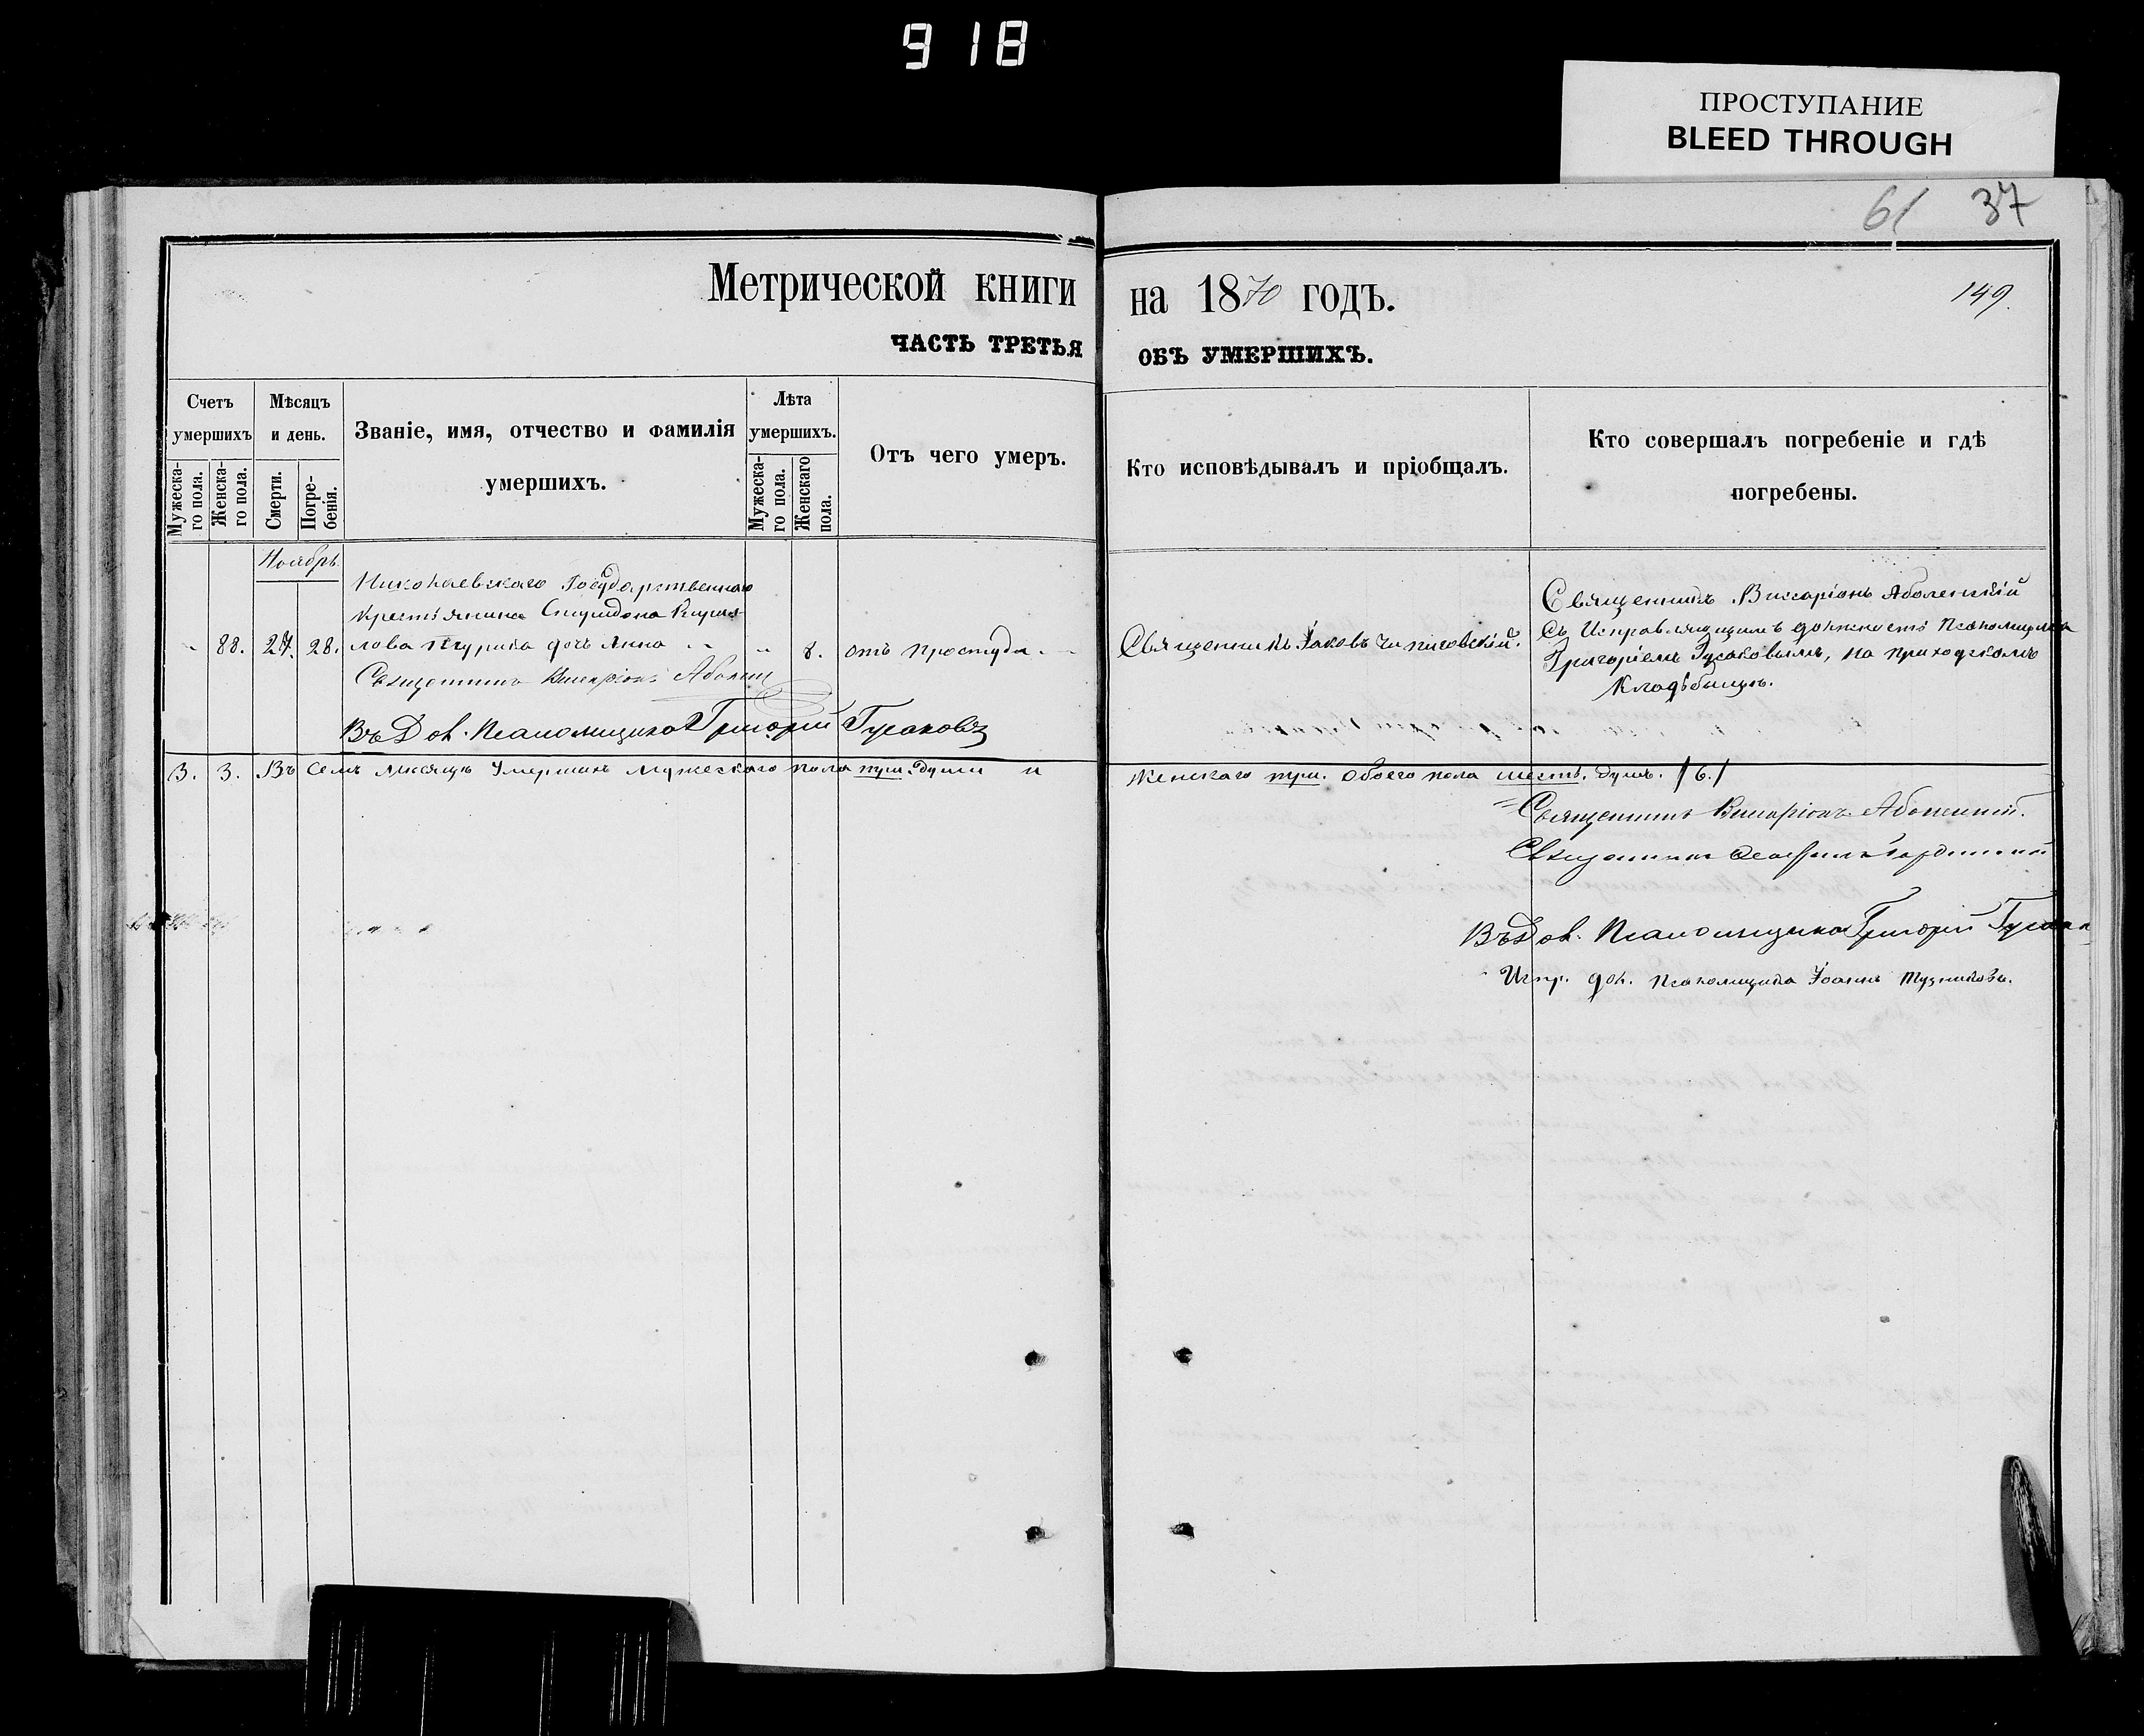 918
ПРОСТУПАНИЕ
BLEED THROUGH
61 37
Метрической книги на 1870 годъ.
149.
ЧАСТЬ ТРЕТЬЯ ОБЪ УМЕРШИХЪ.
Счетъ умершихъ
Мѣсяцъ и день.
Званіе, имя, отчество и фамилія умершихъ.
Лѣта умершихъ.
Отъ чего умеръ.
Кто исповѣдывалъ и пріобщалъ.
Кто совершалъ погребеніе и гдѣ погребены.
Мужеска-го пола.
Женска-го пола.
Смерти.
Погре-бенія.
Мужеска-го пола.
Женскаго пола.
Ноябрь.
Николаевскаго Государственнаго
Крестьянина Спиридона
88. 27. 28. дочь Анна 8. отъ простуды.
Священникъ Іаковъ
Священникъ Виссаріонъ Аболенскій
Съ Исправляющимъ должность Псаломщика
Григоріемъ Гусаковымъ, на приходскомъ
Кладбищѣ.
Священникъ Виссаріонъ
Въ Дол. Псаломщика Григорій Гусаковъ
3. 3. Въ семъ мѣсяцѣ Умершихъ мужескаго пола три души и женскаго три. обоего пола шесть душъ. /6./
Священникъ Виссаріонъ Аболенскій.
Священникъ
Въ Дол. Псаломщика Григорій
Испр. дол. псаломщика Іоаннъ